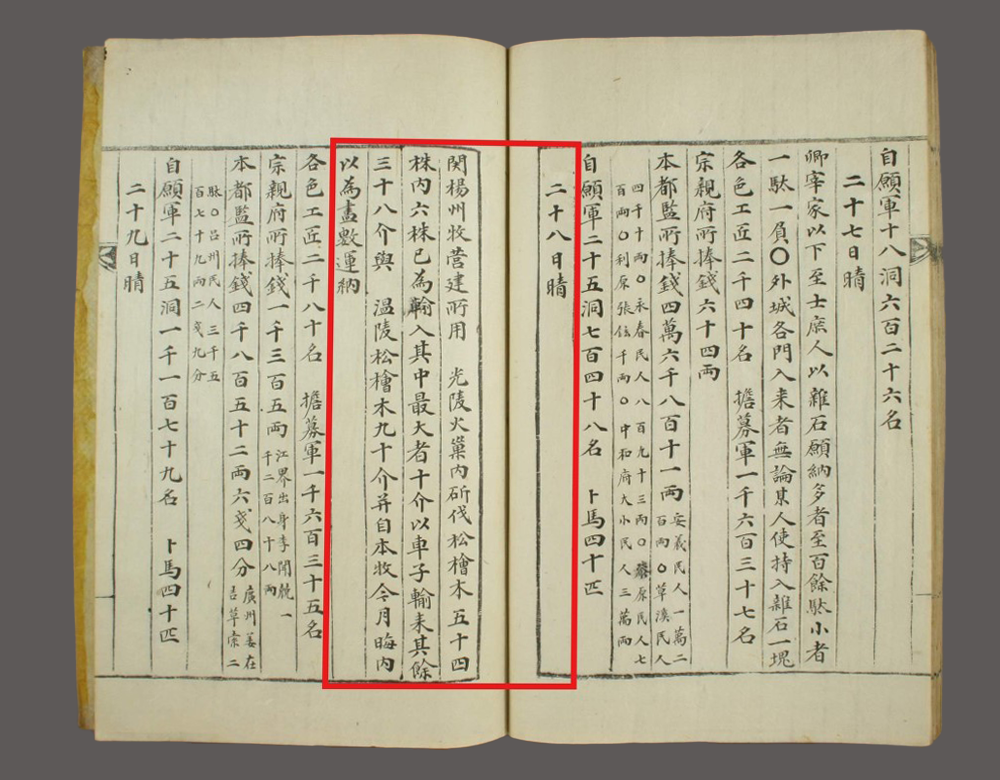 自願軍十八洞六百二十六名
二十七日晴
卿宰家以下至士庶人以雜石願納多者至百餘馱小者
一馱一負〇外城各門入来者無論東人使持入雜石一塊
各色工匠二千四十名 擔募軍一千六百三十七名
宗親府所捧錢六十四両
本都監所捧錢四萬六千八百十一両 安義民人一萬二
百両〇草溪民人
四千十両〇永春民人八百九十三両〇原民人七
百両〇利原張紜千両〇中和府大小民人三萬両
自願軍二十五洞七百四十八名 卜馬四十匹
二十八日晴
関楊州牧营建所用 光陵火巢内斫伐松檜木五十四
株内六株已為輸入其中最大者十介以車子輸来其餘
三十八介與 温陵松檜木九十介并自本牧今月晦内
以為盡數運納
各色工匠二千八十名 擔募軍一千六百三十五名
宗親府所捧錢一千三百五両 江界出身李開兢一
千二百八十八両
本都監所捧錢四千八百五十二両六戔四分 廣州姜在
呂草索二
馱〇呂州民人三千五
百七十九両二戔九分
自願軍二十五洞一千一百七十九名 卜馬四十匹
二十九日晴